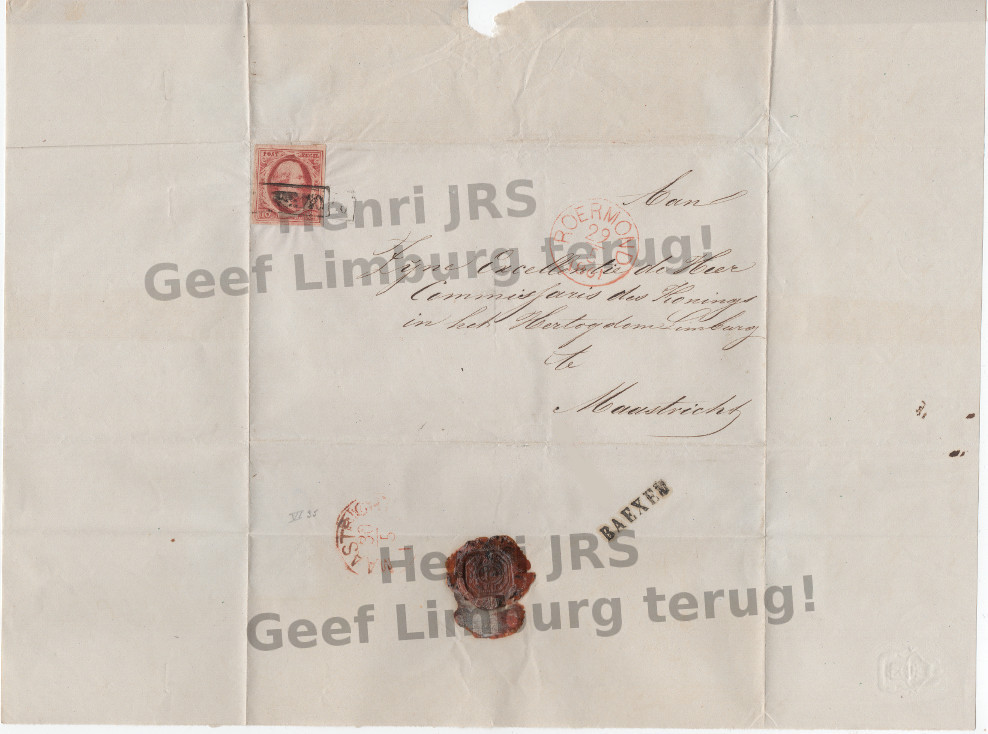 POST
Aan
ROERMOND
29
Henri JRS
Geef Limburg terug!
Zyne Excellentie de Heer
Commissaris des Konings
in het Hertogdom Limburg
te
Maastricht
BAEXEM
MAASTRICH
30
5
Henri JRS
Geef Limburg terug!